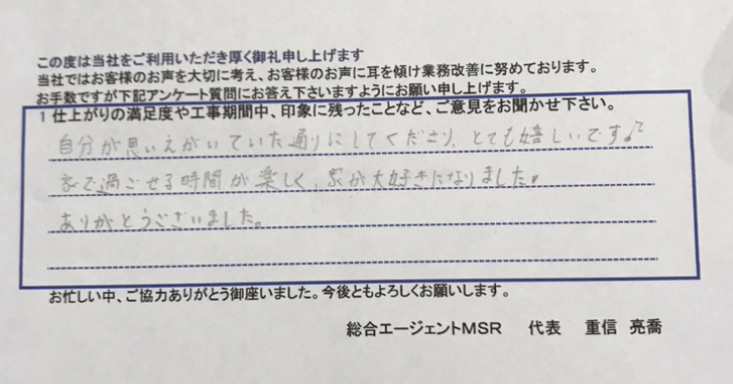 この度は当社をご利用いただき厚く御礼申し上げます
当社ではお客様のお声を大切に考え、お客様のお声に耳を傾け業務改善に努めております。
お手数ですが下記アンケート質問にお答え下さいますようにお願い申し上げます。
1 仕上がりの満足度や工事期間中、印象に残ったことなど、ご意見をお聞かせ下さい。
自分が思いえがいていた通りにしてくださり、とても嬉しいです♪
家で過ごせる時間が楽しく、家が大好きになりました♥
ありがとうございました。
お忙しい中、ご協力ありがとう御座いました。今後ともよろしくお願いします。
総合エージェントMSR 代表 重信 亮喬